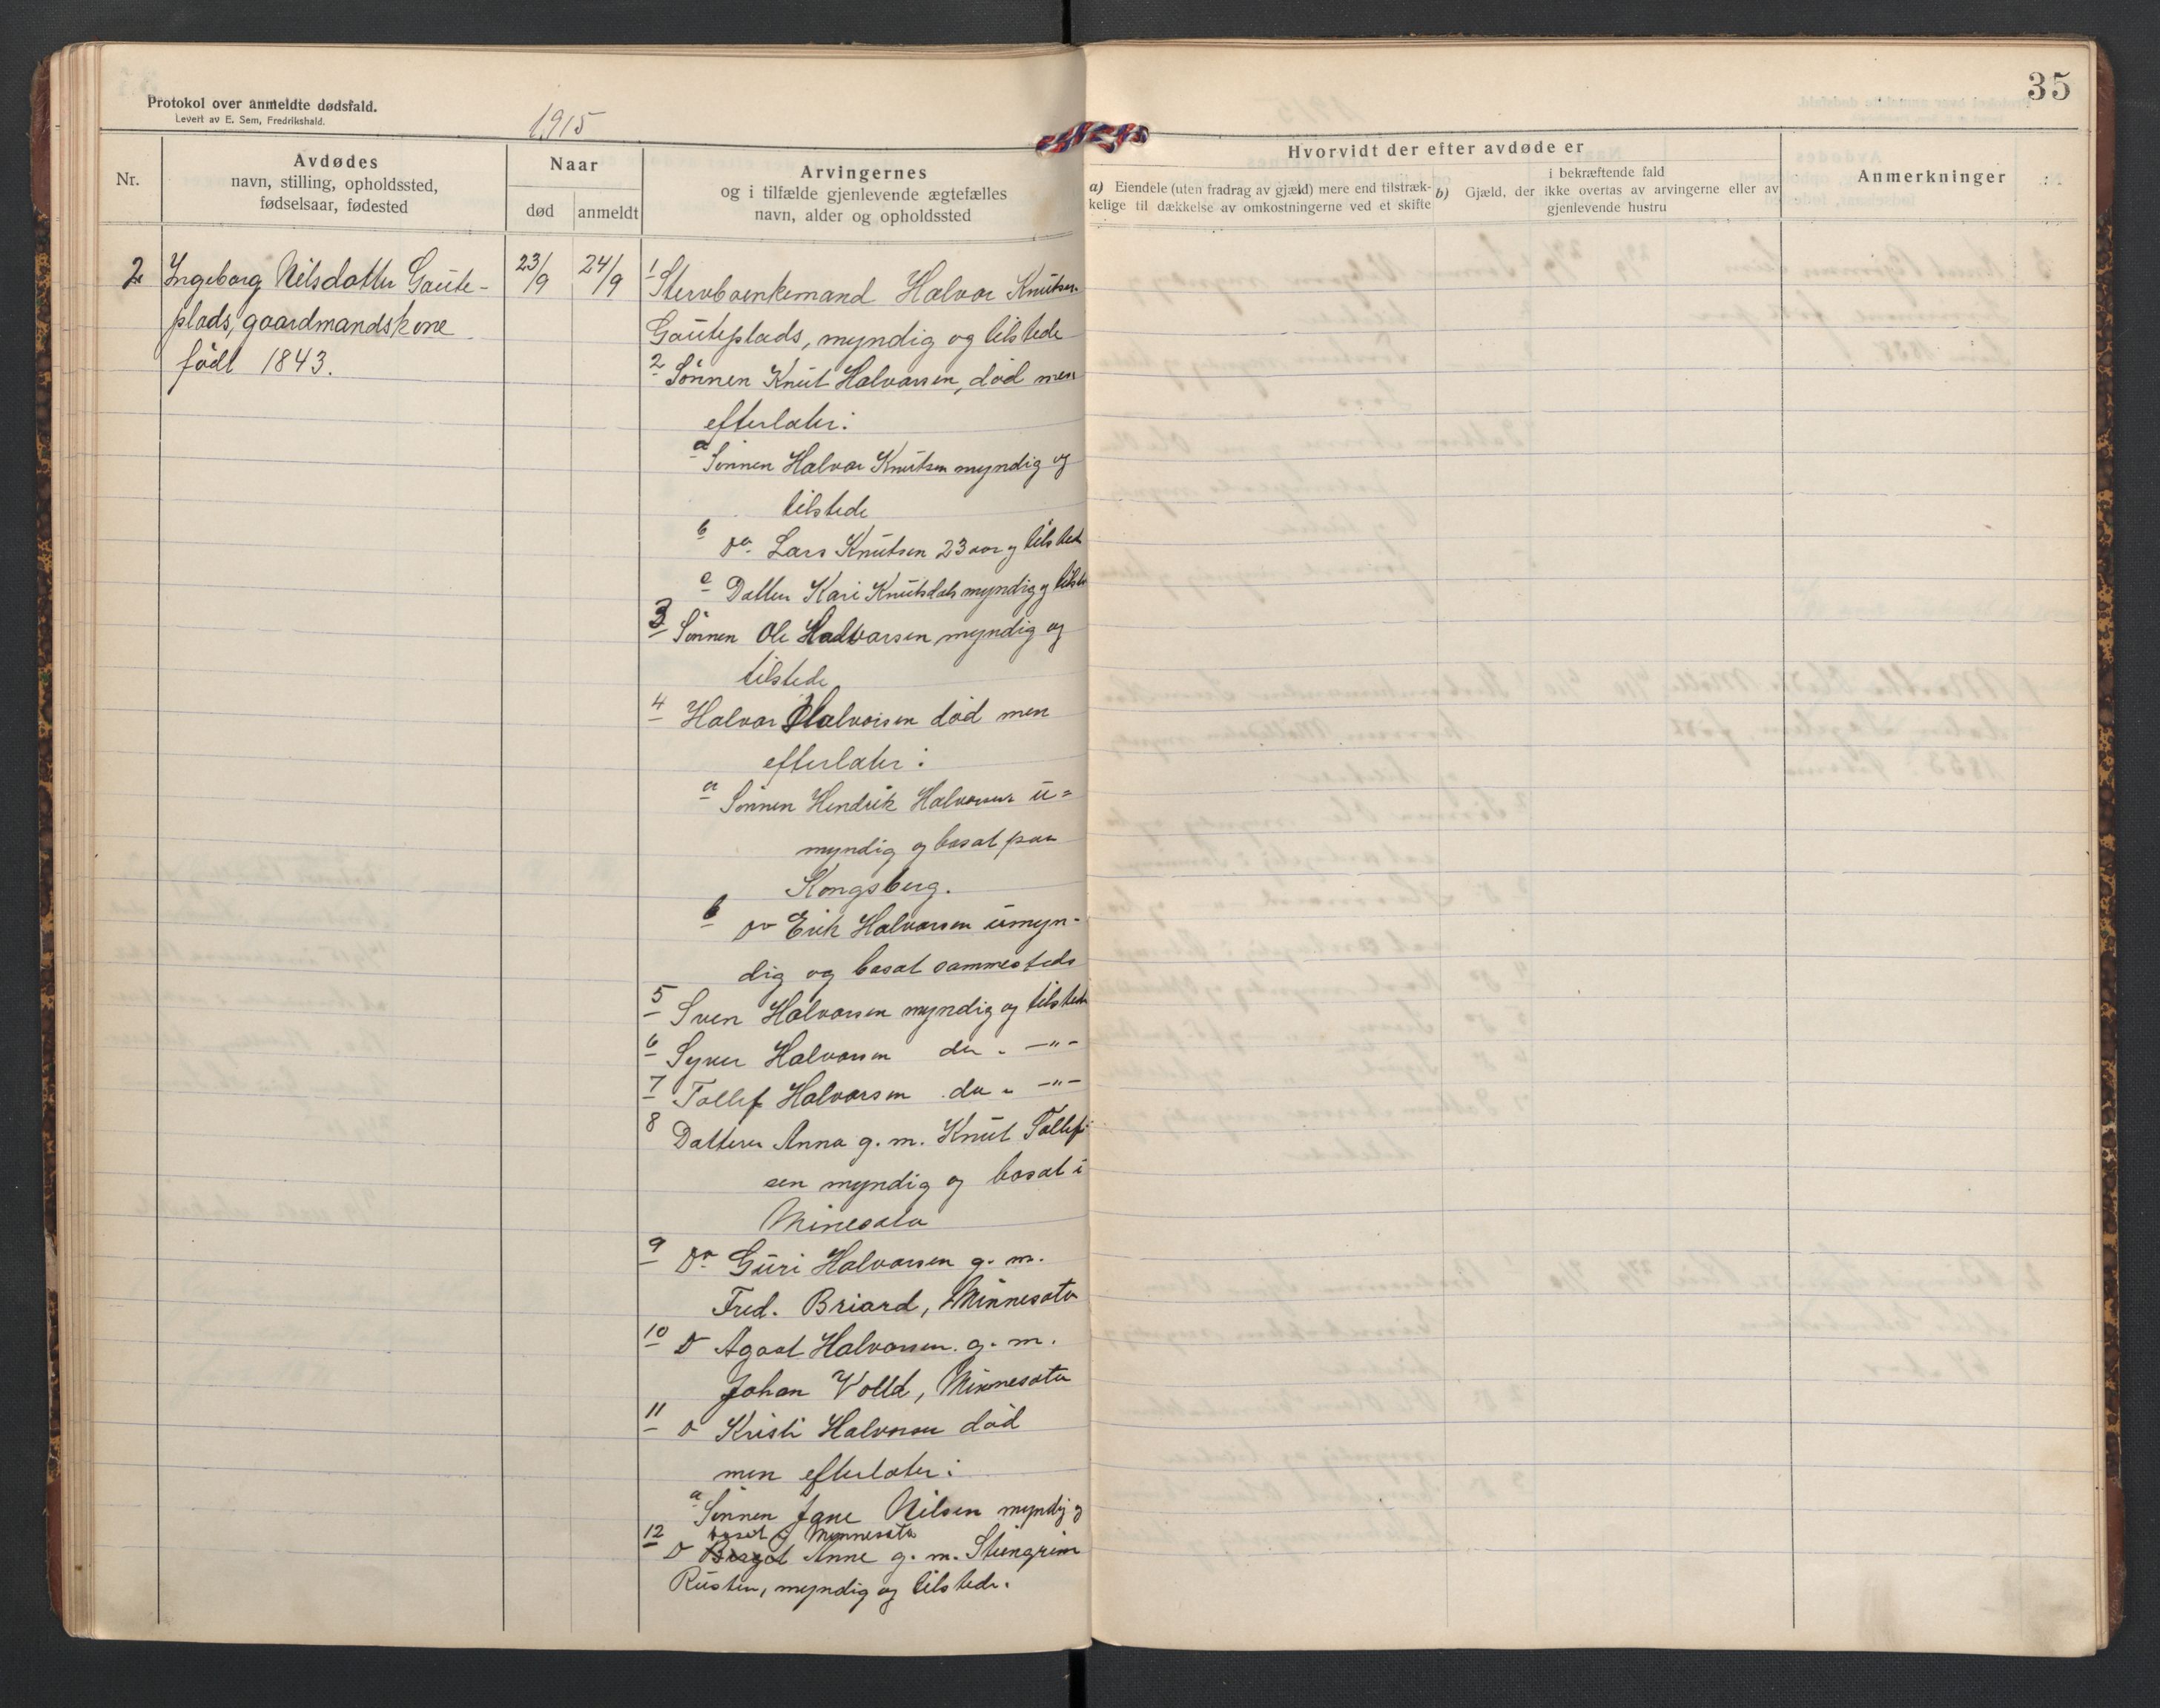 35
Protokol over anmeldte dødsfald.
Levert av E. Sem, Fredrikshald.
1915
Nr.
Avdødes
navn, stilling, opholdssted,
fødselsaar, fødested
Naar
død
anmeldt
Arvingernes
og i tilfælde gjenlevende ægtefælles
navn, alder og opholdssted
Hvorvidt der efter avdøde er
a) Eiendele (uten fradrag av gjæld) mere end tilstræk-
kelige til dækkelse av omkostningerne ved et skifte
b) Gjæld, der i bekræftende fald
ikke overtas av arvingerne eller av
gjenlevende hustru
Anmerkninger
2
Ingeborg Nilsdatter Gaute-
plads, gaardmandskone
født 1843.
23/9
24/9
1 Stervboenkemand Halvor Knutsen
Gauteplads, myndig og tilstede
2 Sønnen Knut Halvorsen, død men
efterlater:
a Sønnen Halvor Knutsen myndig og
tilstede
b do Lars Knutsen 23 aar og tilstede
c Datter Kari Knutsdatt myndig og tilste
3 Sønnen Ole Halvorsen myndig og
tilstede
4 Halvor Halvorsen død men
efterlater:
a Sønnen Hendrik Halvorsen u=
myndig og bosat paa
Kongsberg.
b do Erik Halvorsen umyn-
dig og bosat sammesteds
5 Sven Halvorsen myndig og tilstede
6 Syver Halvorsen do - -"-
7 Tollef Halvorsen do - -"-
8 Datteren Anna g. m. Knut Tollef-
sen myndig og bosat i
Minesota
9 Do Guri Halvorsen g. m.
Fred. Briard, Minnesota
10 D Agaat Halvorsen g. m.
Johan Volld, Minnesota
11 D Kristi Halvorsen død
men efterlater:
a Sønnen Jane Nilsen myndig og
bosat i Mynnesota
12 D Birgit Anne g. m. Steingrim
Rusten, myndig og tilstede.